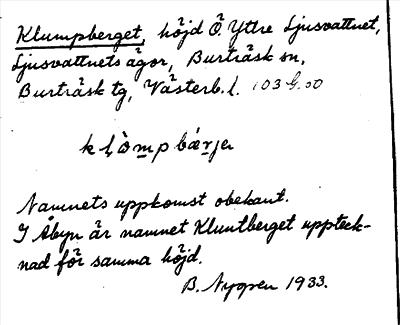 Klumpberget, höjd Ö. Yttre Ljusvattnet,
Ljusvattnets ägor, Burträsk sn,
Burträsk tg, Västerb. l. 103 G. 00
kḷòmpbærje
Namnets uppkomst obekant.
I Åbyn är namnet Kluntberget uppteck-
nad för samma höjd.
B. Nygren 1933.